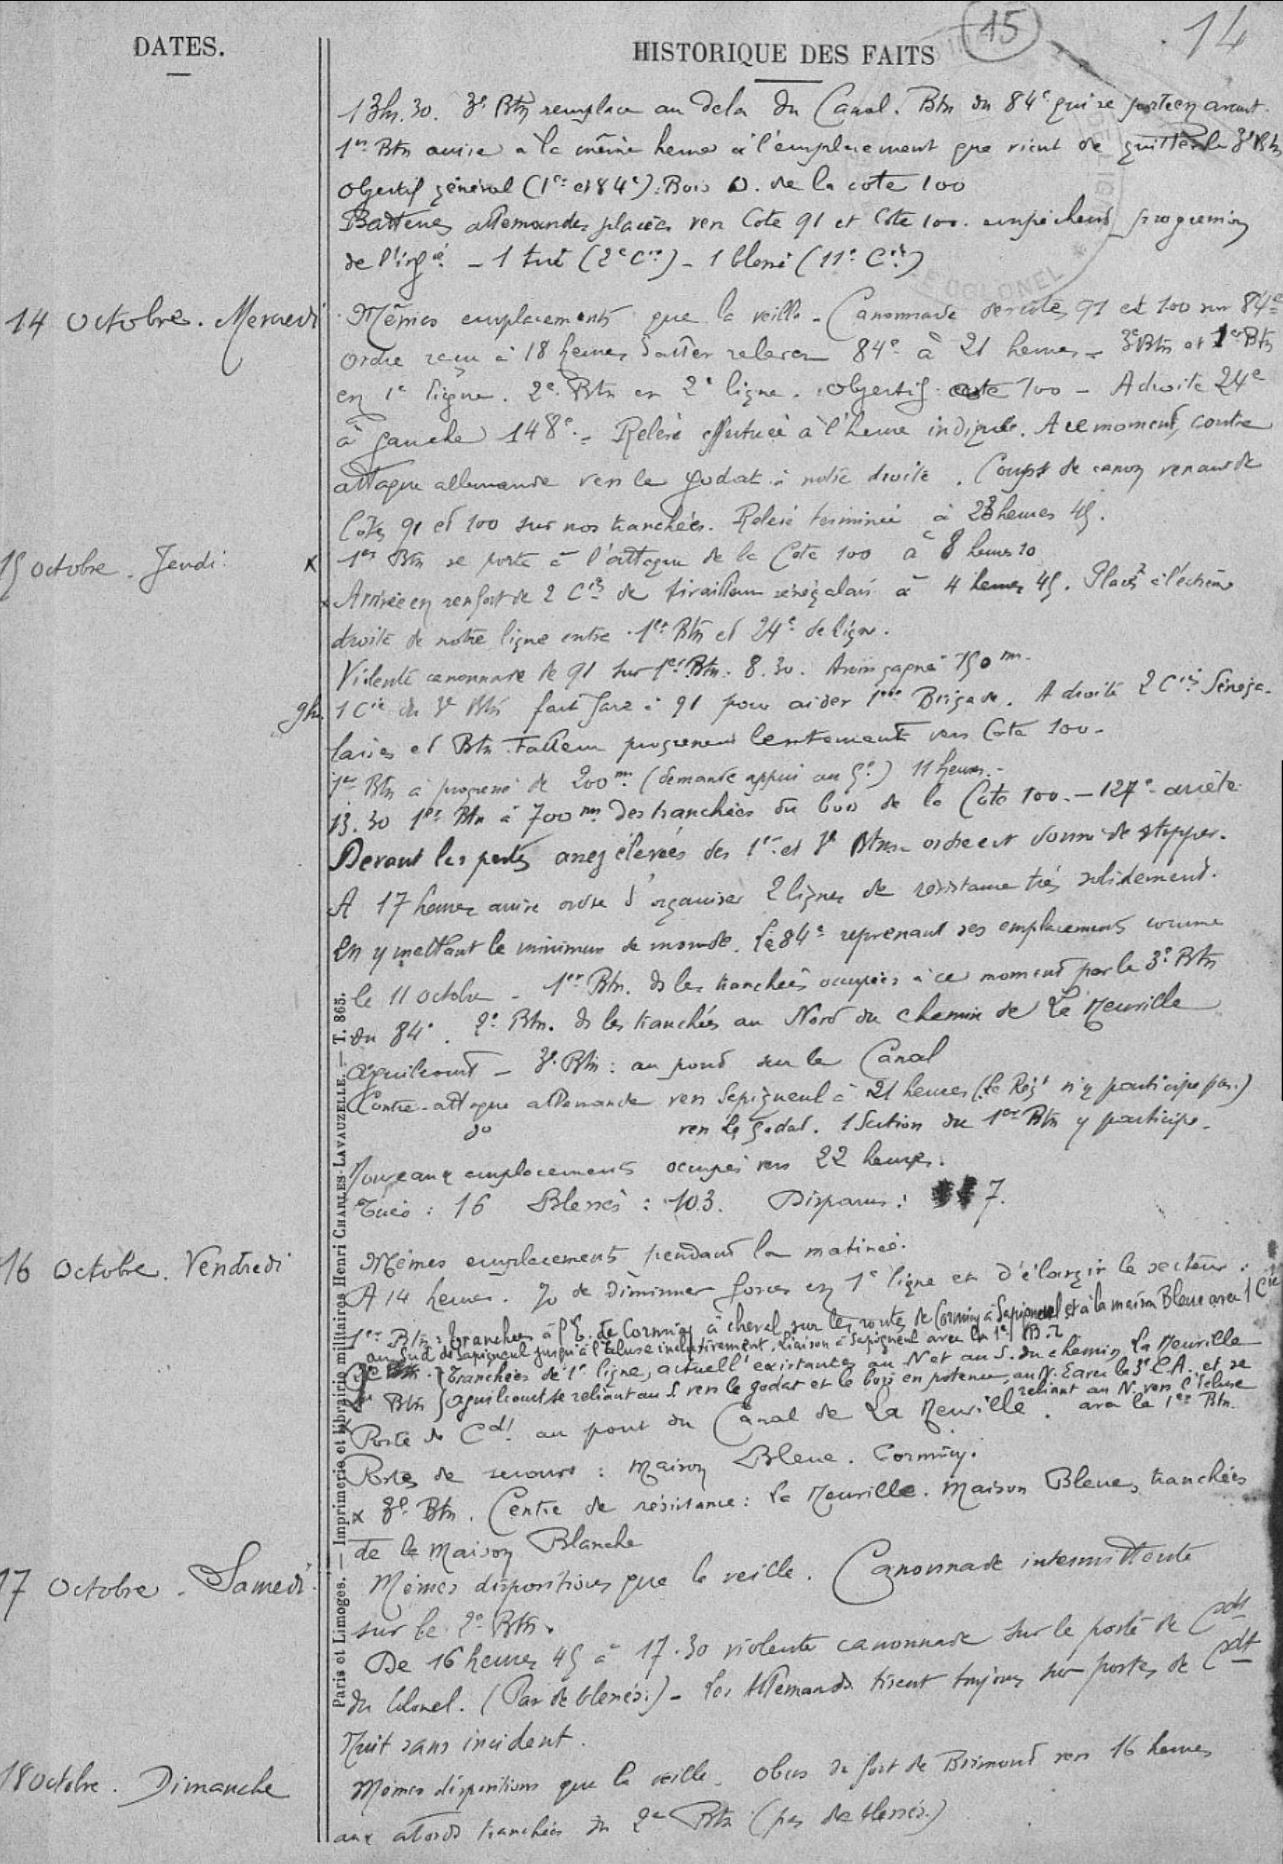 15
14
DATES.
HISTORIQUE DES FAITS
13h.30. 3e Btn remplace au delà du Canal. Btn du 84e qui se porte en avant.
1er Btn arrive à la même heure à l'emplacement que vient de quitter le 3e Btn
Objectif général (1er et 84e): Bois O. de la cote 100
Batteries allemandes placées vers Cote 91 et Cote 100. empêchent progression
de l'infie. - 1 tué (2e Cie) - 1 blessé (11e Cie)
14 Octobre. Mercredi
Mêmes emplacements que la veille - Canonnade des cotes 91 et 100 sur 84e
Ordre reçu à 18 heures d'aller relever 84e à 21 heures - 3e Btn et 1er Btn
en 1e ligne. 2e Btn en 2e ligne. Objectif cote 100 - A droite 24e
à gauche 148e - Relève effectuée à l'heure indiquée. A ce moment, contre
attaque allemande vers le Godat à notre droite. Coups de canon venant de
Cotes 91 et 100 sur nos tranchées. Relève terminée à 23 heures 45.
15 octobre. Jeudi
x 1er Btn se porte à l'attaque de la Cote 100 à 8 heures 10
x Arrivée en renfort de 2 Cies de tirailleurs sénégalais à 4 heures 45. Placés à l'extrême
droite de notre ligne entre 1er Btn et 24e de ligne.
Violente canonnade de 91 sur 1er Btn. 8.30. Avons gagné 150 m.
9h. 1 Cie du 3e Btn fait face à 91 pour aider 1ère Brigade. A droite 2 Cies Sénéga-
laises et Btn progressent lentement vers Cote 100.
1er Btn a progressé de 200m. (demande appui au ) 11 heures.-
13.30 1er Btn à 700m. des tranchées du bois de la Cote 100. - 127e arrêté
Devant les pertes assez élevées des 1er et 3e Btns - ordre est donné de stopper.
A 17 heures arrive ordre d'organiser 2 lignes de résistance très solidement.
En y mettant le minimum de monde. Le 84e reprenant ses emplacements comme
le 11 octobre - 1er Btn. ds les tranchées occupées à ce moment par le 3e Btn
du 84e. 2e Btn. ds les tranchées au Nord du chemin de La Neuville
Aguilcourt - 3e Btn: au pont sur le Canal
Contre-attaque allemande vers Sapigneul à 21 heures (Le Regt n'y participe pas.)
do vers Le Godat. 1 Section du 1er Btn y participe.
Nouveaux emplacements occupés vers 22 heures.
Tués: 16 Blessés: 103. Disparus: 7.
16 Octobre. Vendredi
Mêmes emplacements pendant la matinée.
A 14 heures. de diminuer forces en 1e ligne et d'élargir le secteur.
1er Btn: tranchées à l'E. de Cormicy à cheval sur les routes de Cormicy à Sapigneul et à la maison Bleue avec 1 Cie
au Sud de Sapigneul jusqu'à l'écluse inclusivement. Liaison à Sapigneul avec la 1e B.
2e Btn. } Tranchées de 1e ligne, actuellt existantes au N et au S. du chemin La Neuville
Btn } Aguilcourt se reliant au S vers le godat et le bois en potence, au N. E avec le 3e C.A. et se
reliant au N. vers l'écluse
avec le 1er Btn.
Poste de Cdt au pont du Canal de La Neuville.
Postes de secours: Maison Bleue. Cormicy.
x 3e Btn. Centre de résistance: La Neuville. Maison Bleue, tranchées
de la Maison Blanche
17 Octobre. Samedi
Mêmes dispositions que la veille. Canonnade intermittente
sur le 2e Btn.
De 16 heures 45 à 17.30 violente canonnade sur le poste de Cdt
du Colonel. (Pas de blessés.) - Les Allemands tirent toujours sur postes de Cdt
Nuit sans incident.
18 Octobre. Dimanche
Mêmes dispositions que la veille. Obus du fort de Brimont vers 16 heures
aux abords tranchées du 2e Btn (pas de blessés.)
Paris et Limoges. — Imprimerie et librairie militaires Henri CHARLES-LAVAUZELLE. — T. 865.